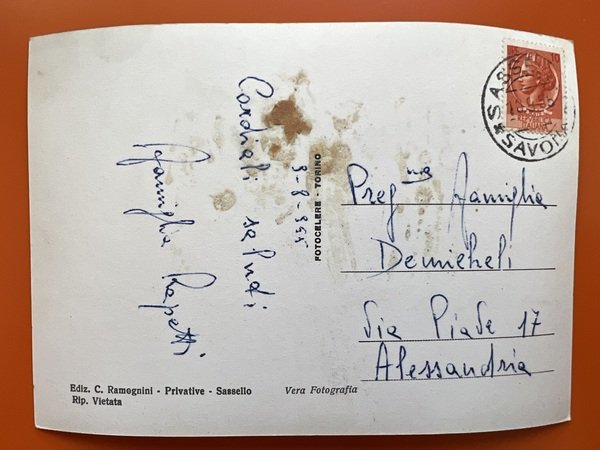 Cordiali saluti
3-8-955
Famiglia Rapetti
FOTOCELERE - TORINO
SASSELLO
SAVONA
Preg ma Famiglia
Demicheli
Via Piave 17
Alessandria
Ediz. C. Ramognini - Privative - Sassello
Rip. Vietata
Vera Fotografia